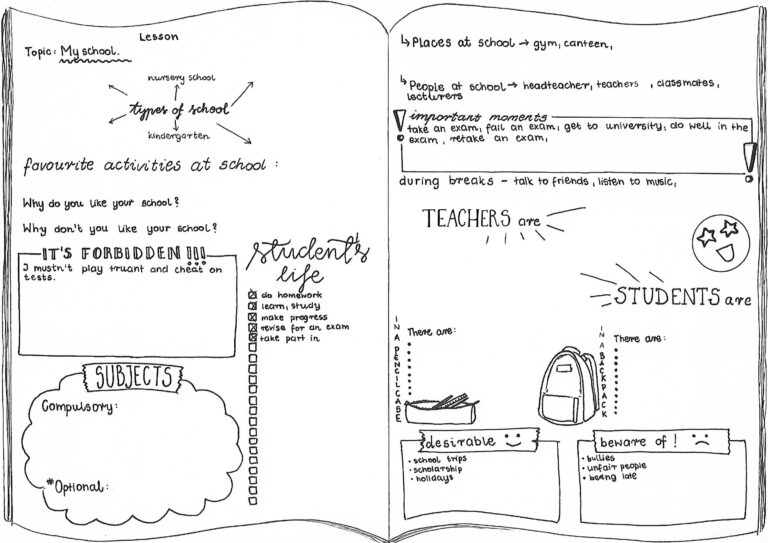 Lesson
Topic: My school.
nursery school
types of school
kindergarten
favourite activities at school :
Why do you like your school?
Why don't you like your school?
IT'S FORBIDDEN !!!
I mustn't play truant and cheat on
tests.
student's
life
do homework
learn, study
make progress
revise for an exam
take part in
SUBJECTS
Compulsory:
*Optional:
↳Places at school → gym, canteen,
↳People at school → headteacher, teachers , classmates,
lecturers
important moments
take an exam, fail an exam, get to university, do well in the
exam, retake an exam,
during breaks - talk to friends, listen to music,
TEACHERS are
STUDENTS are
IN A PENCILCASE
There are:
IN A BACKPACK
There are:
desirable
• school trips
• scholarship
• holidays
beware of !
• bullies
• unfair people
• being late